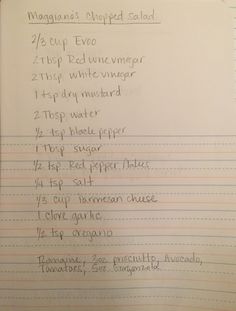 Maggiano's Chopped Salad
2/3 cup Evoo
2 Tbsp Red wine vinegar
2 Tbsp white vinegar
1 tsp dry mustard
2 Tbsp water
1/2 tsp black pepper
1 Tbsp sugar
1/2 tsp Red pepper flakes
1/4 tsp salt
1/3 cup Parmesan cheese
1 clove garlic
1/2 tsp oregano
Romaine, 3oz prosciutto, Avocado,
Tomatoes, 5oz Gorgonzola